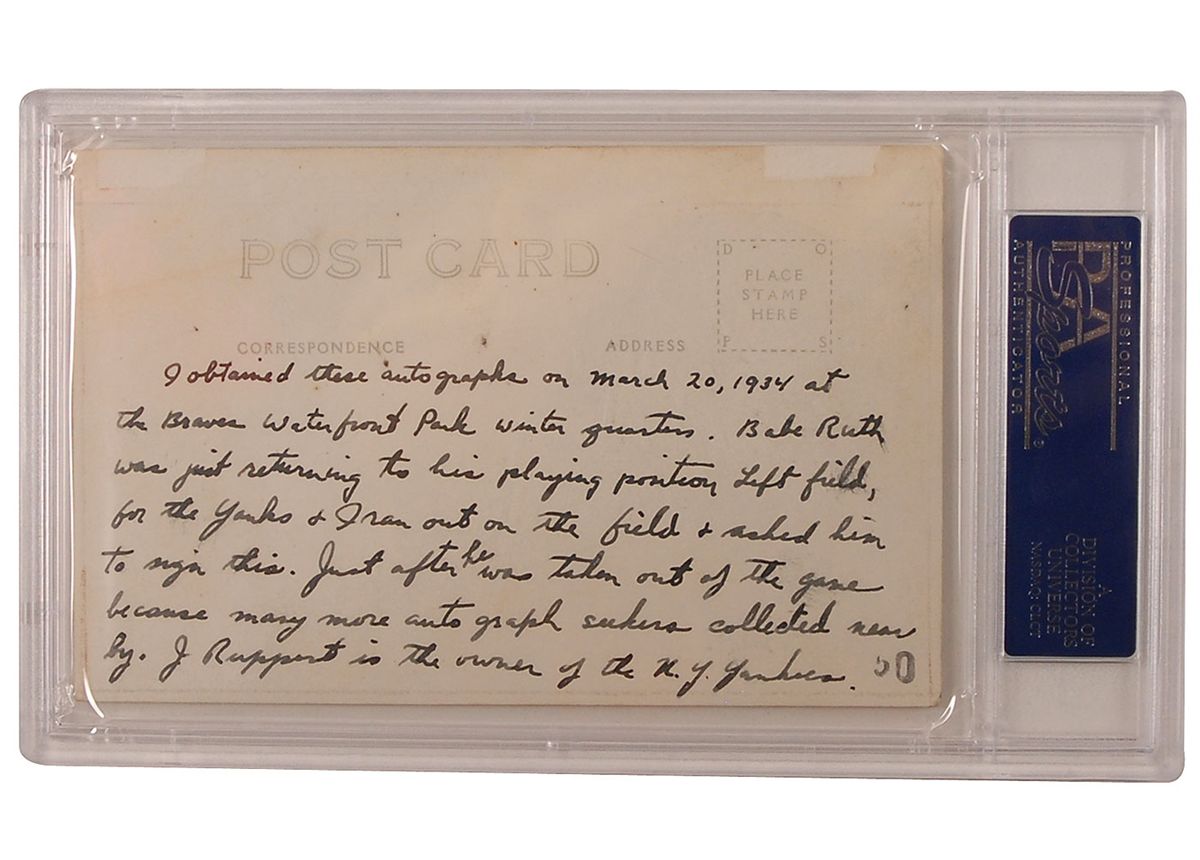 POST CARD
D O
PLACE
STAMP
HERE
P S
CORRESPONDENCE
ADDRESS
I obtained these autographs on March 20, 1934 at
the Braves Waterfront Park winter quarters. Babe Ruth
was just returning to his playing position Left field,
for the Yanks & I ran out on the field & asked him
to sign this. Just after he was taken out of the game
because many more auto graph seekers collected near
by. J Ruppert is the owner of the N. Y. Yankees.
50
PROFESSIONAL
PSA
Sports
AUTHENTICATOR
A
DIVISION OF
COLLECTORS
UNIVERSE
NASDAQ: CLCT